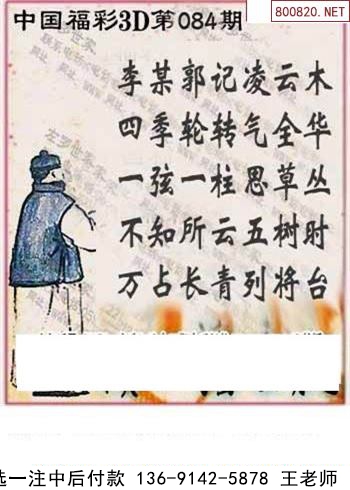 中国福彩3D第084期
800820.NET
李某郭记凌云木
四季轮转气全华
一弦一柱思草丛
不知所云五树时
万占长青列将台
选一注中后付款 136-9142-5878 王老师